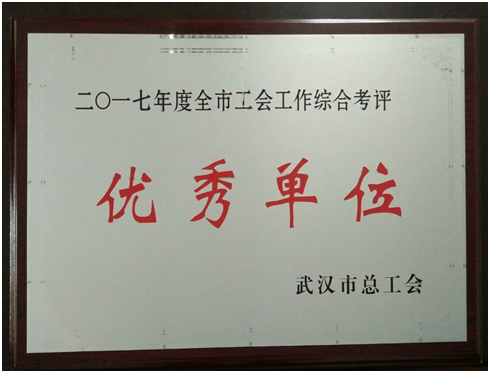 二〇一七年度全市工会工作综合考评
优秀单位
武汉市总工会